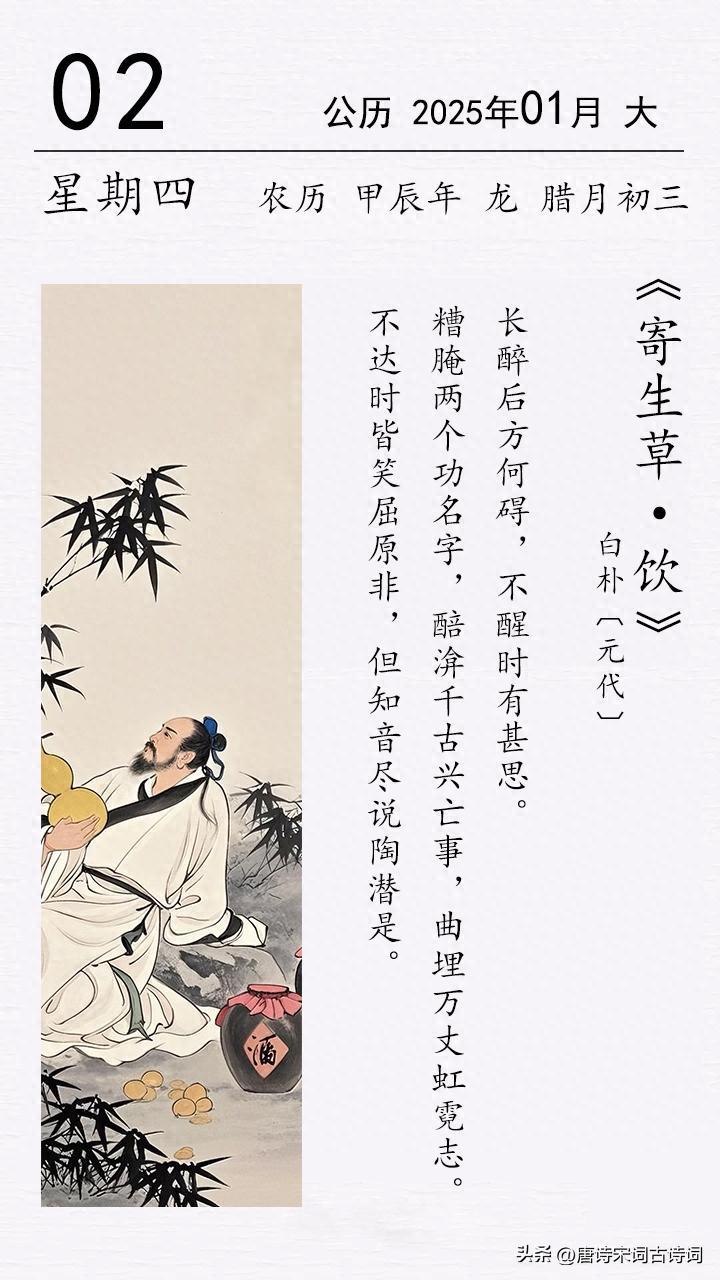 02
公历 2025年01月 大
星期四
农历 甲辰年 龙 腊月初三
《寄生草·饮》
白朴〔元代〕
长醉后方何碍，不醒时有甚思。
糟腌两个功名字，醅渰千古兴亡事，曲埋万丈虹霓志。
不达时皆笑屈原非，但知音尽说陶潜是。
酒
头条 @唐诗宋词古诗词